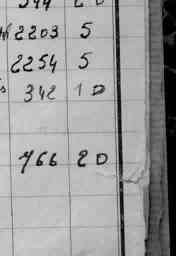 2203 5
2254 5
342 10
766 20